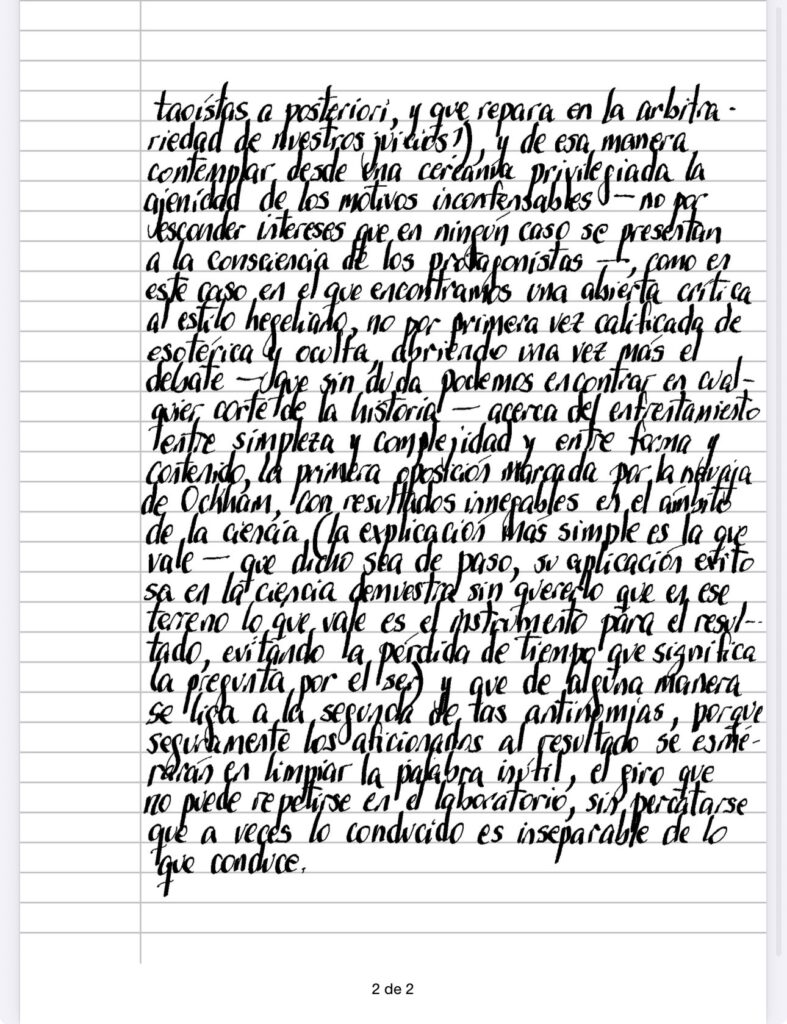 taoístas a posteriori, y que repara en la arbitra-
riedad de nuestros juicios!), y de esa manera
contemplar desde una cercanía privilegiada la
ajenidad de los motivos inconfensables — no por
esconder intereses que en ningún caso se presentan
a la consciencia de los protagonistas —, como en
este caso en el que encontramos una abierta crítica
al estilo hegeliano, no por primera vez calificada de
esotérica y oculta, abriendo una vez más el
debate — que sin duda podemos encontrar en cual-
quier corte de la historia — acerca del enfrentamiento
entre simpleza y complejidad y entre forma y
contenido, la primera oposición marcada por la navaja
de Ochham, con resultados innegables en el ámbito
de la ciencia (la explicación más simple es la que
vale — que dicho sea de paso, su aplicación exito
sa en la ciencia demuestra sin quererlo que en ese
terreno lo que vale es el instrumento para el resul-
tado, evitando la pérdida de tiempo que significa
la pregunta por el ser) y que de alguna manera
se liga a la segunda de las antinomias, porque
seguramente los aficionados al resultado se esme-
rarán en limpiar la palabra inútil, el giro que
no puede repetirse en el laboratorio, sin percatarse
que a veces lo conducido es inseparable de lo
que conduce.
2 de 2